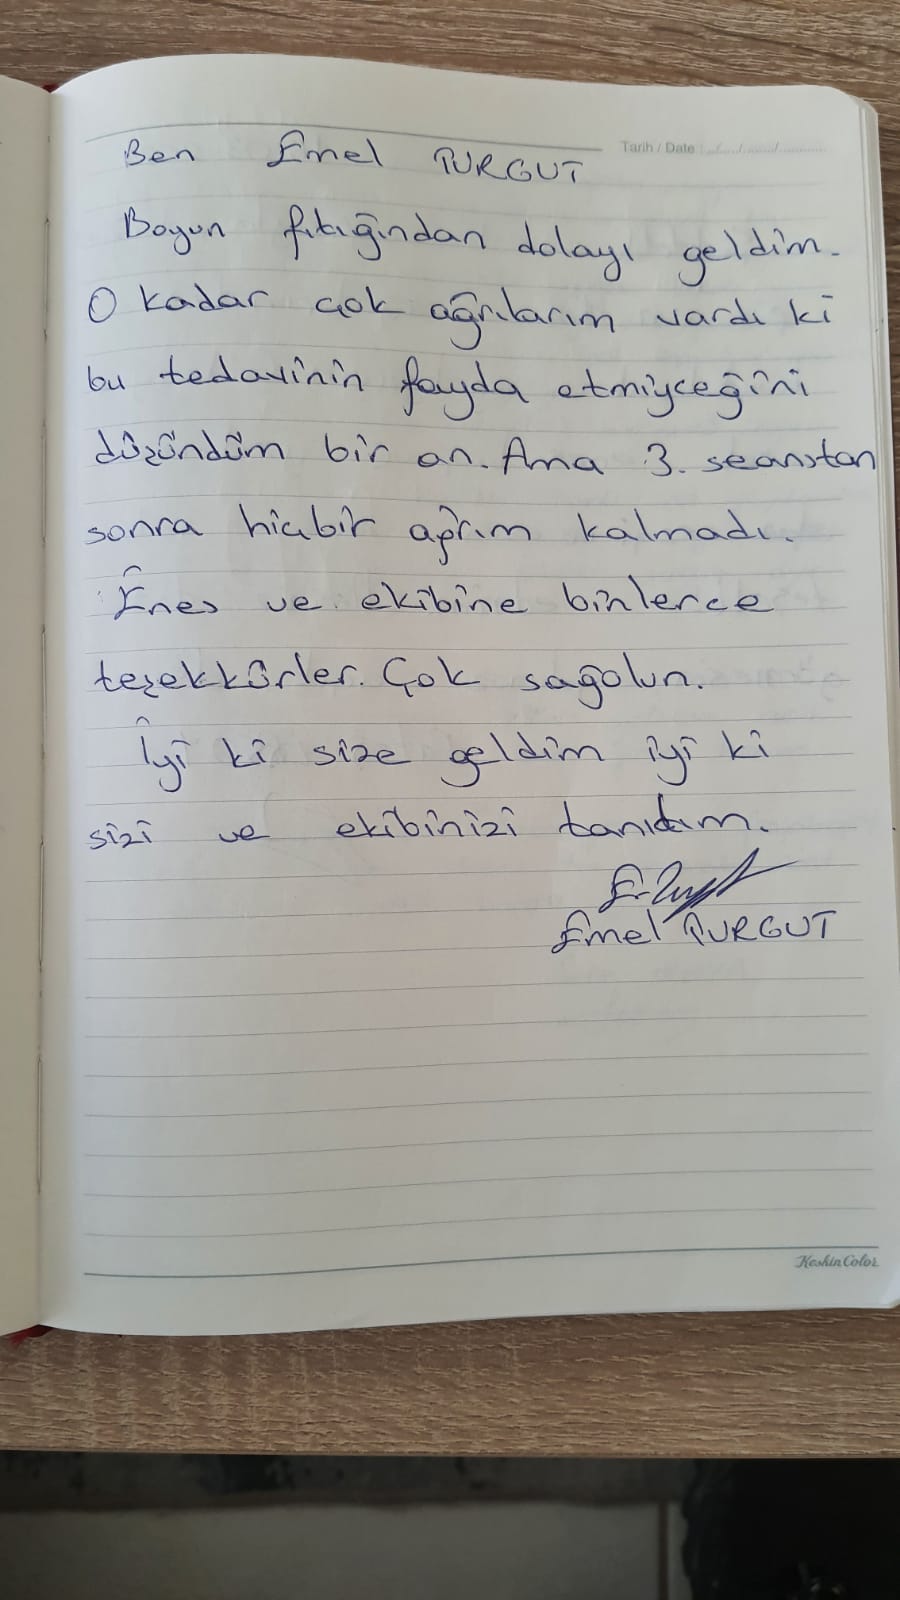 Ben Emel TURGUT
Tarih / Date : ..../..../............
Boyun fıtığından dolayı geldim.
O kadar çok ağrılarım vardı ki
bu tedavinin fayda etmiyceğini
düşündüm bir an. Ama 3. seanstan
sonra hiçbir ağrım kalmadı.
Enes ve ekibine binlerce
teşekkürler. Çok sağolun.
İyi ki size geldim iyi ki
sizi ve ekibinizi tanıdım.
Emel TURGUT
Keskin Color